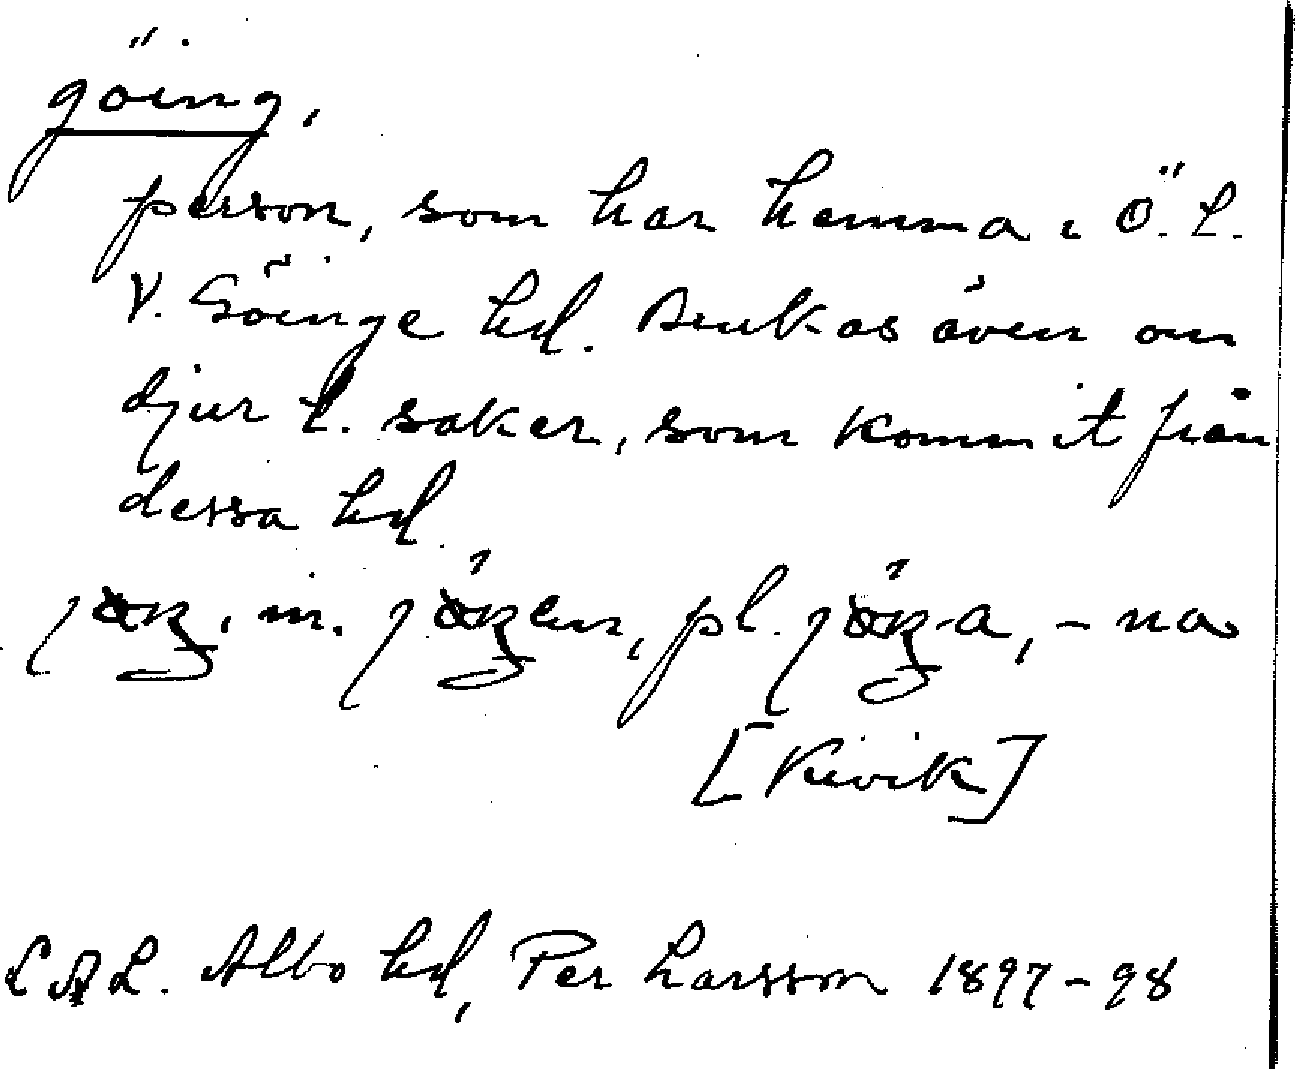 göing,
person, som har hemma i Ö. l.
V. Göinge hd. Brukas även om
djur l. saker, som kommit från
dessa hd.
m. pl. -na
[Kivik]
LAL. Albo hd, Per Larsson 1897-98